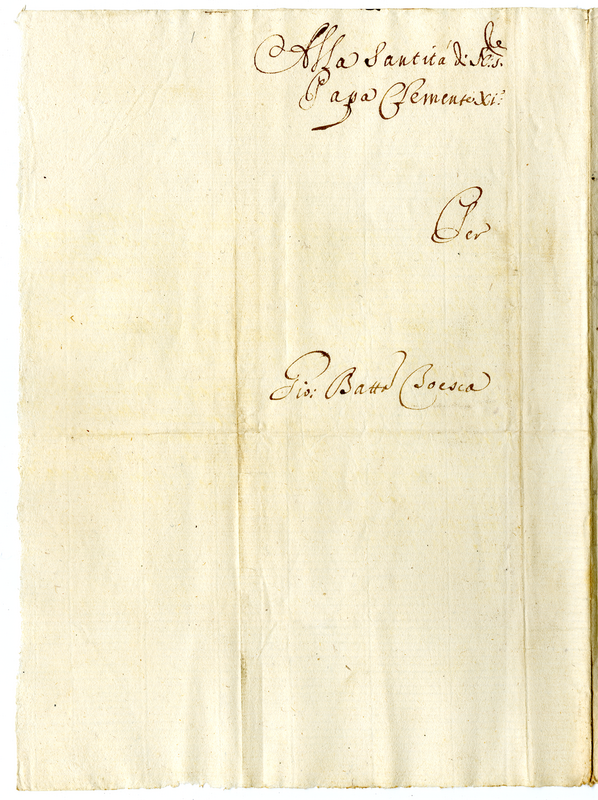 Alla Santità di N.S.re
Papa Clemente XI.
Per
Gio: Batta Boesca